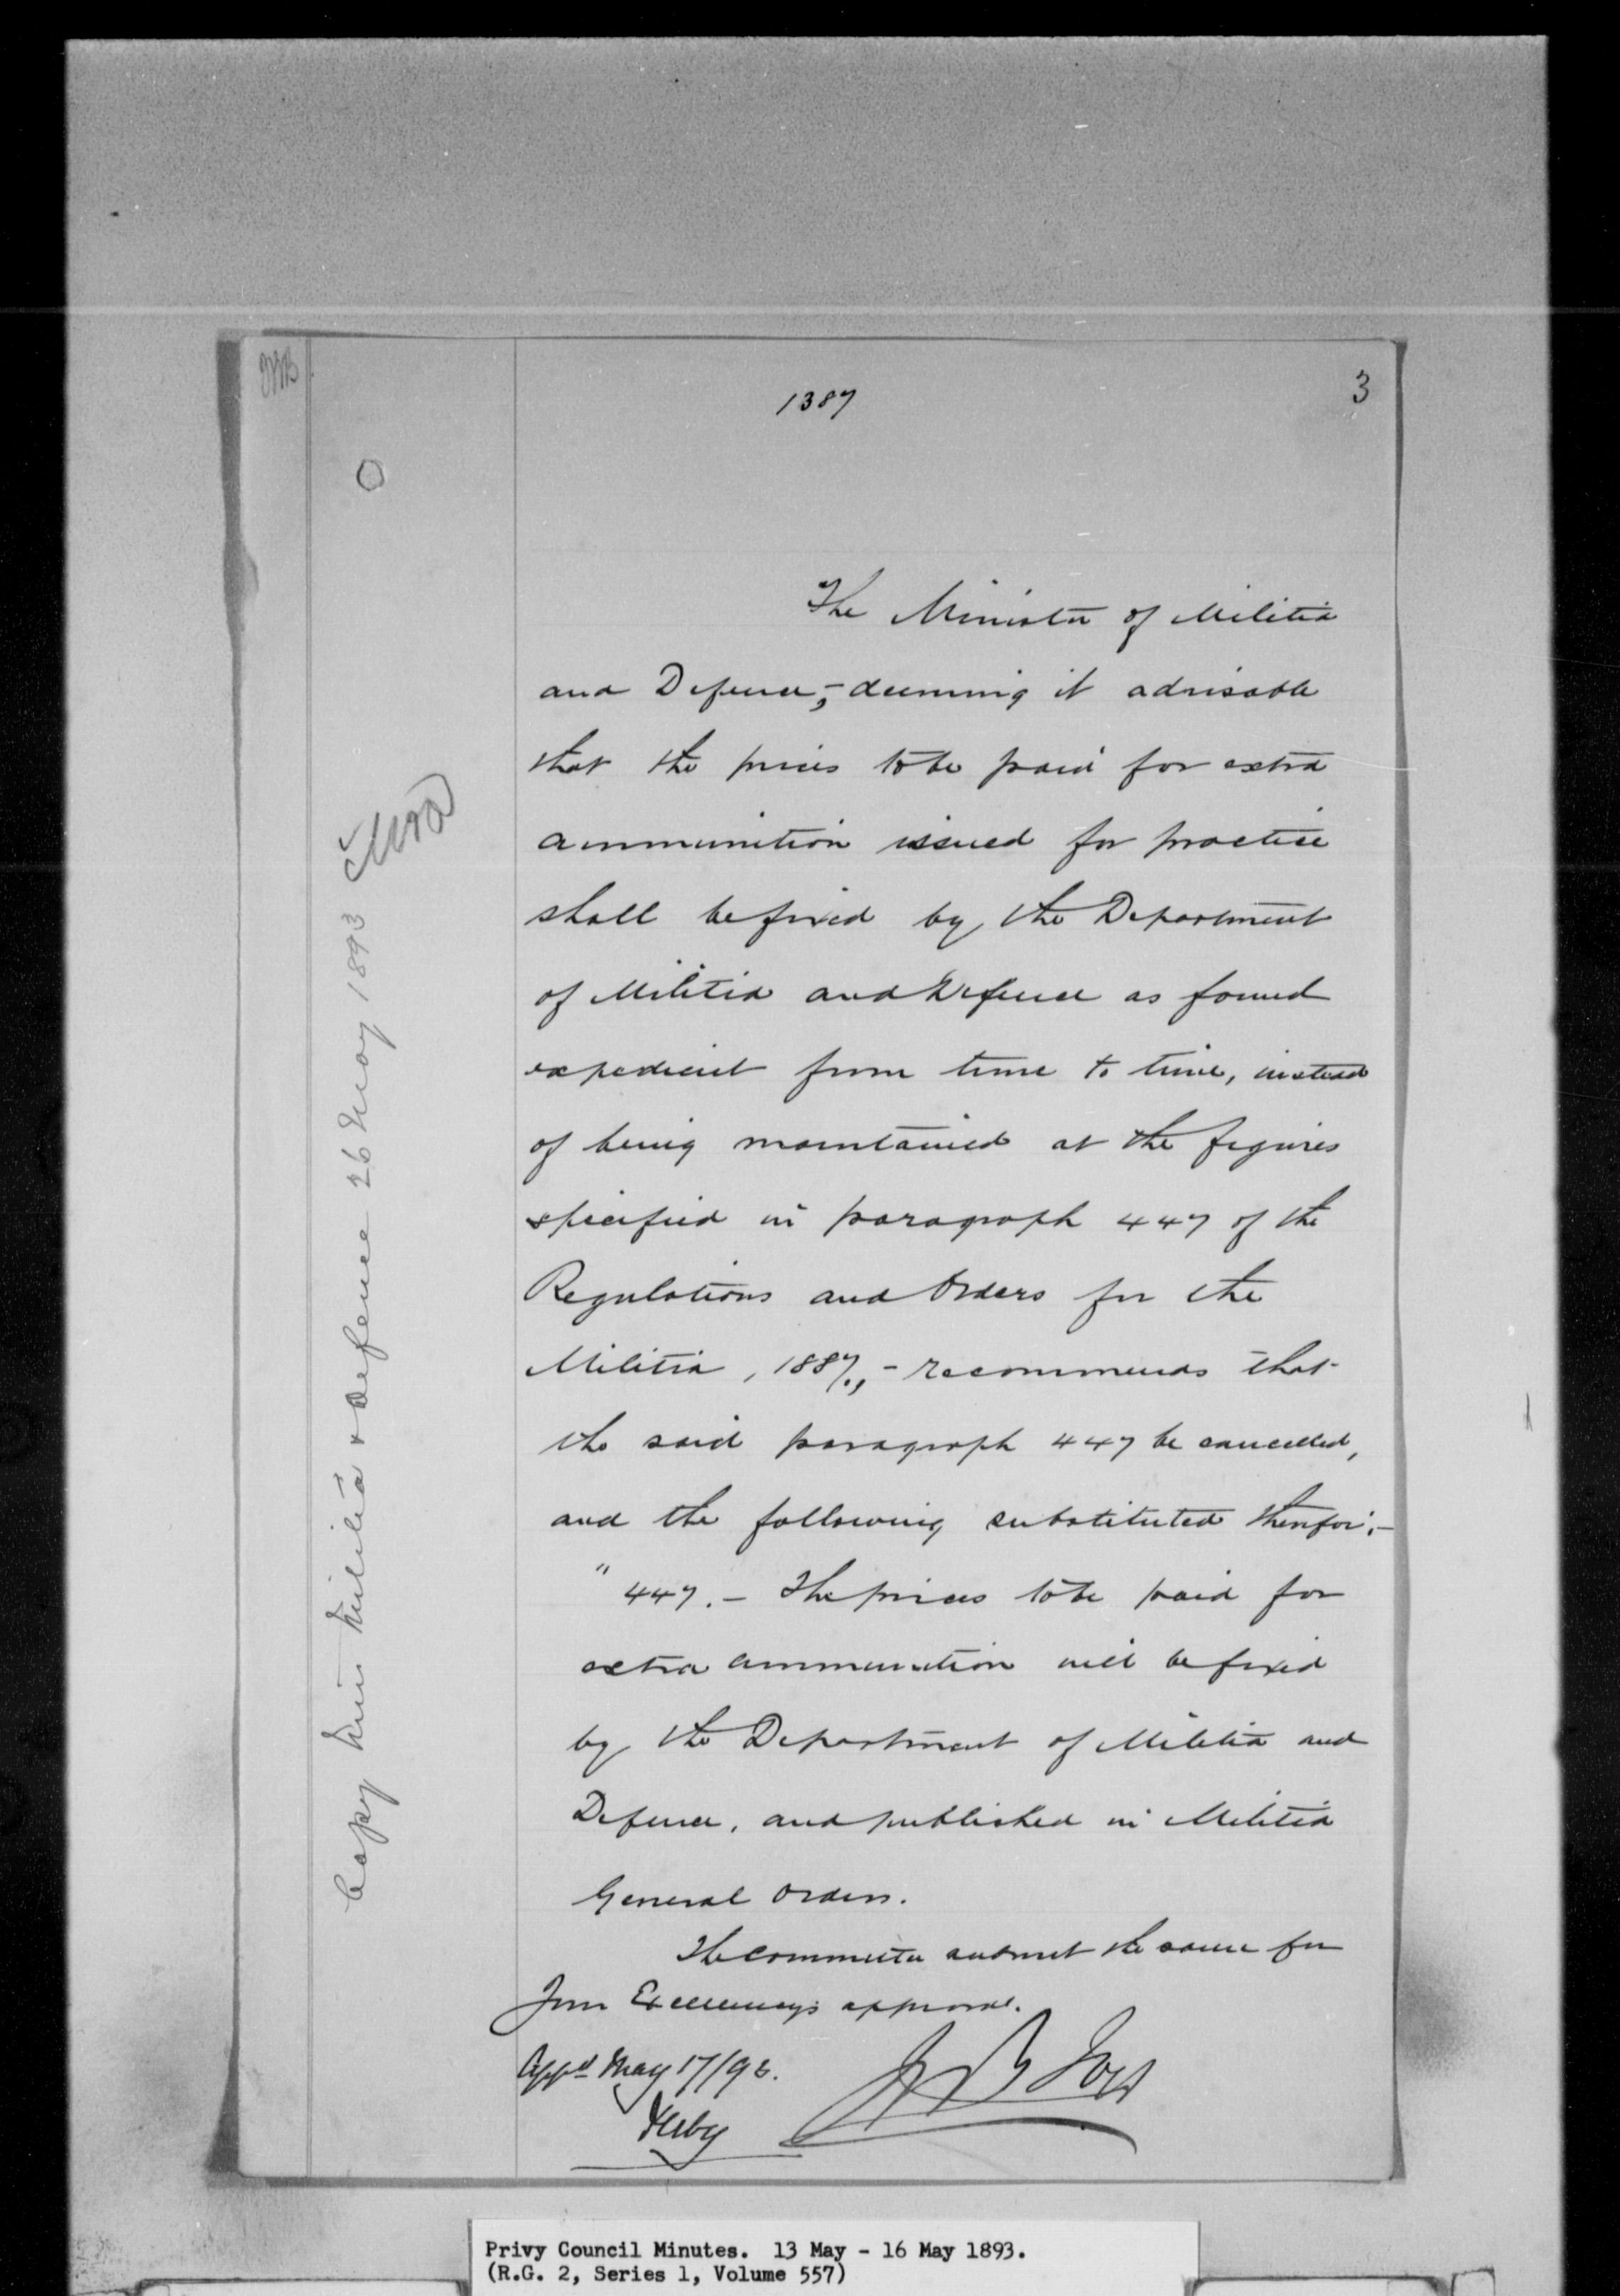 1387
3
The Minister of Militia
and Defence,- deeming it advisable
that the prices to be paid for extra
ammunition issued for practice
shall be fixed by the Department
of Militia and Defence as found
expedient from time to time, instead
of being maintained at the figures
specified in paragraph 447 of the
Regulations and Orders for the
Militia, 1887,- recommends that
the said paragraph 447 be cancelled,
and the following substituted therefor:-
"447.- The prices to be paid for
extra ammunition will be fixed
by the Department of Militia and
Defence, and published in Militia
General Orders.
The Committee submit the same for
Your Excellency's approval.
Appd May 17/93.
Derby
Copy Min Militia & Defence 26 May 1893
Privy Council Minutes. 13 May - 16 May 1893.
(R.G. 2, Series 1, Volume 557)